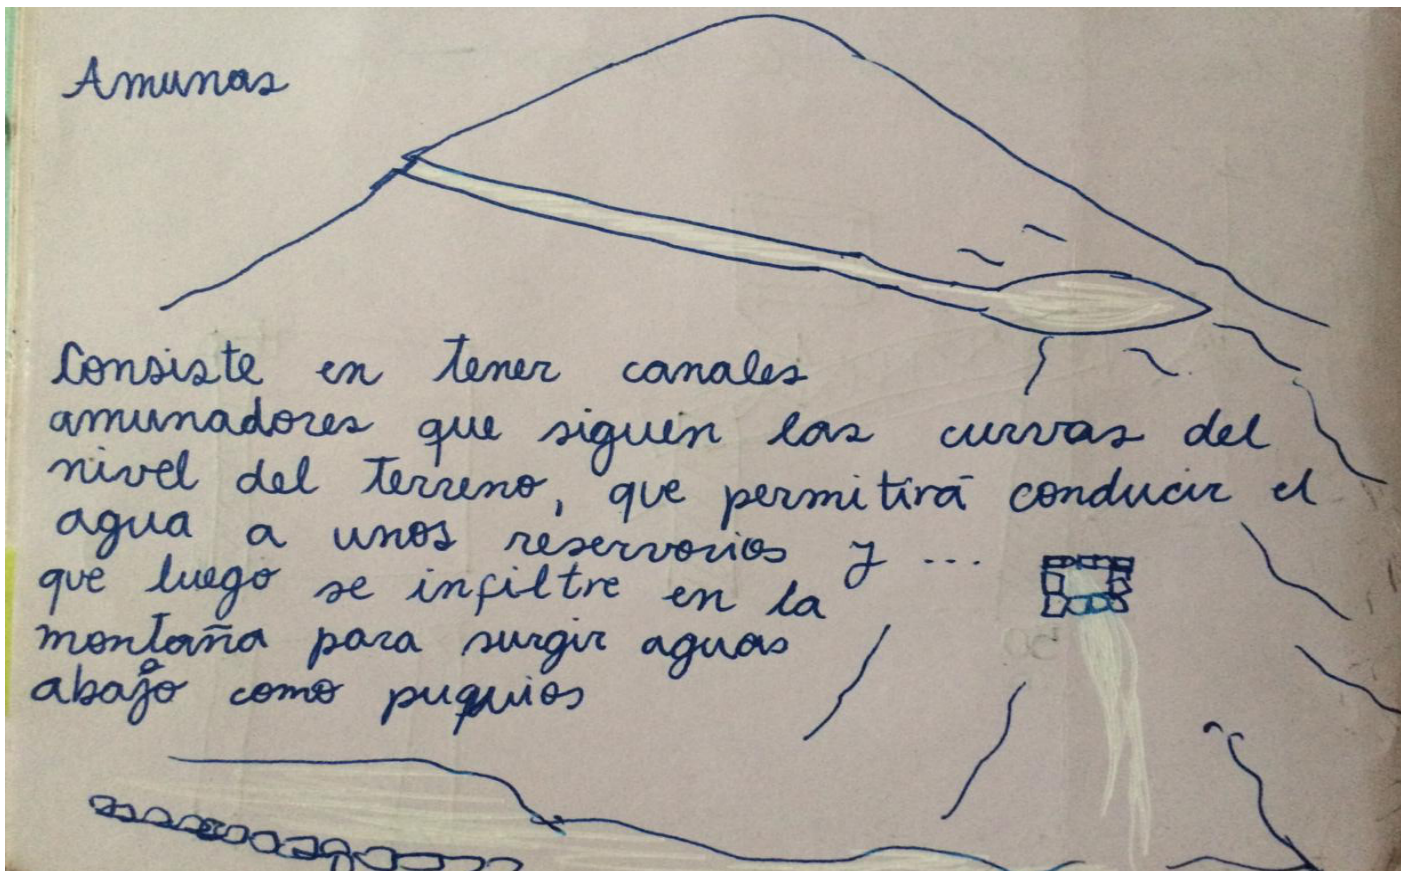 Amunas
Consiste en tener canales
amunadores que siguen las curvas del
nivel del terreno, que permitirá conducir el
agua a unos reservorios y ...
que luego se infiltre en la
montaña para surgir aguas
abajo como puquios